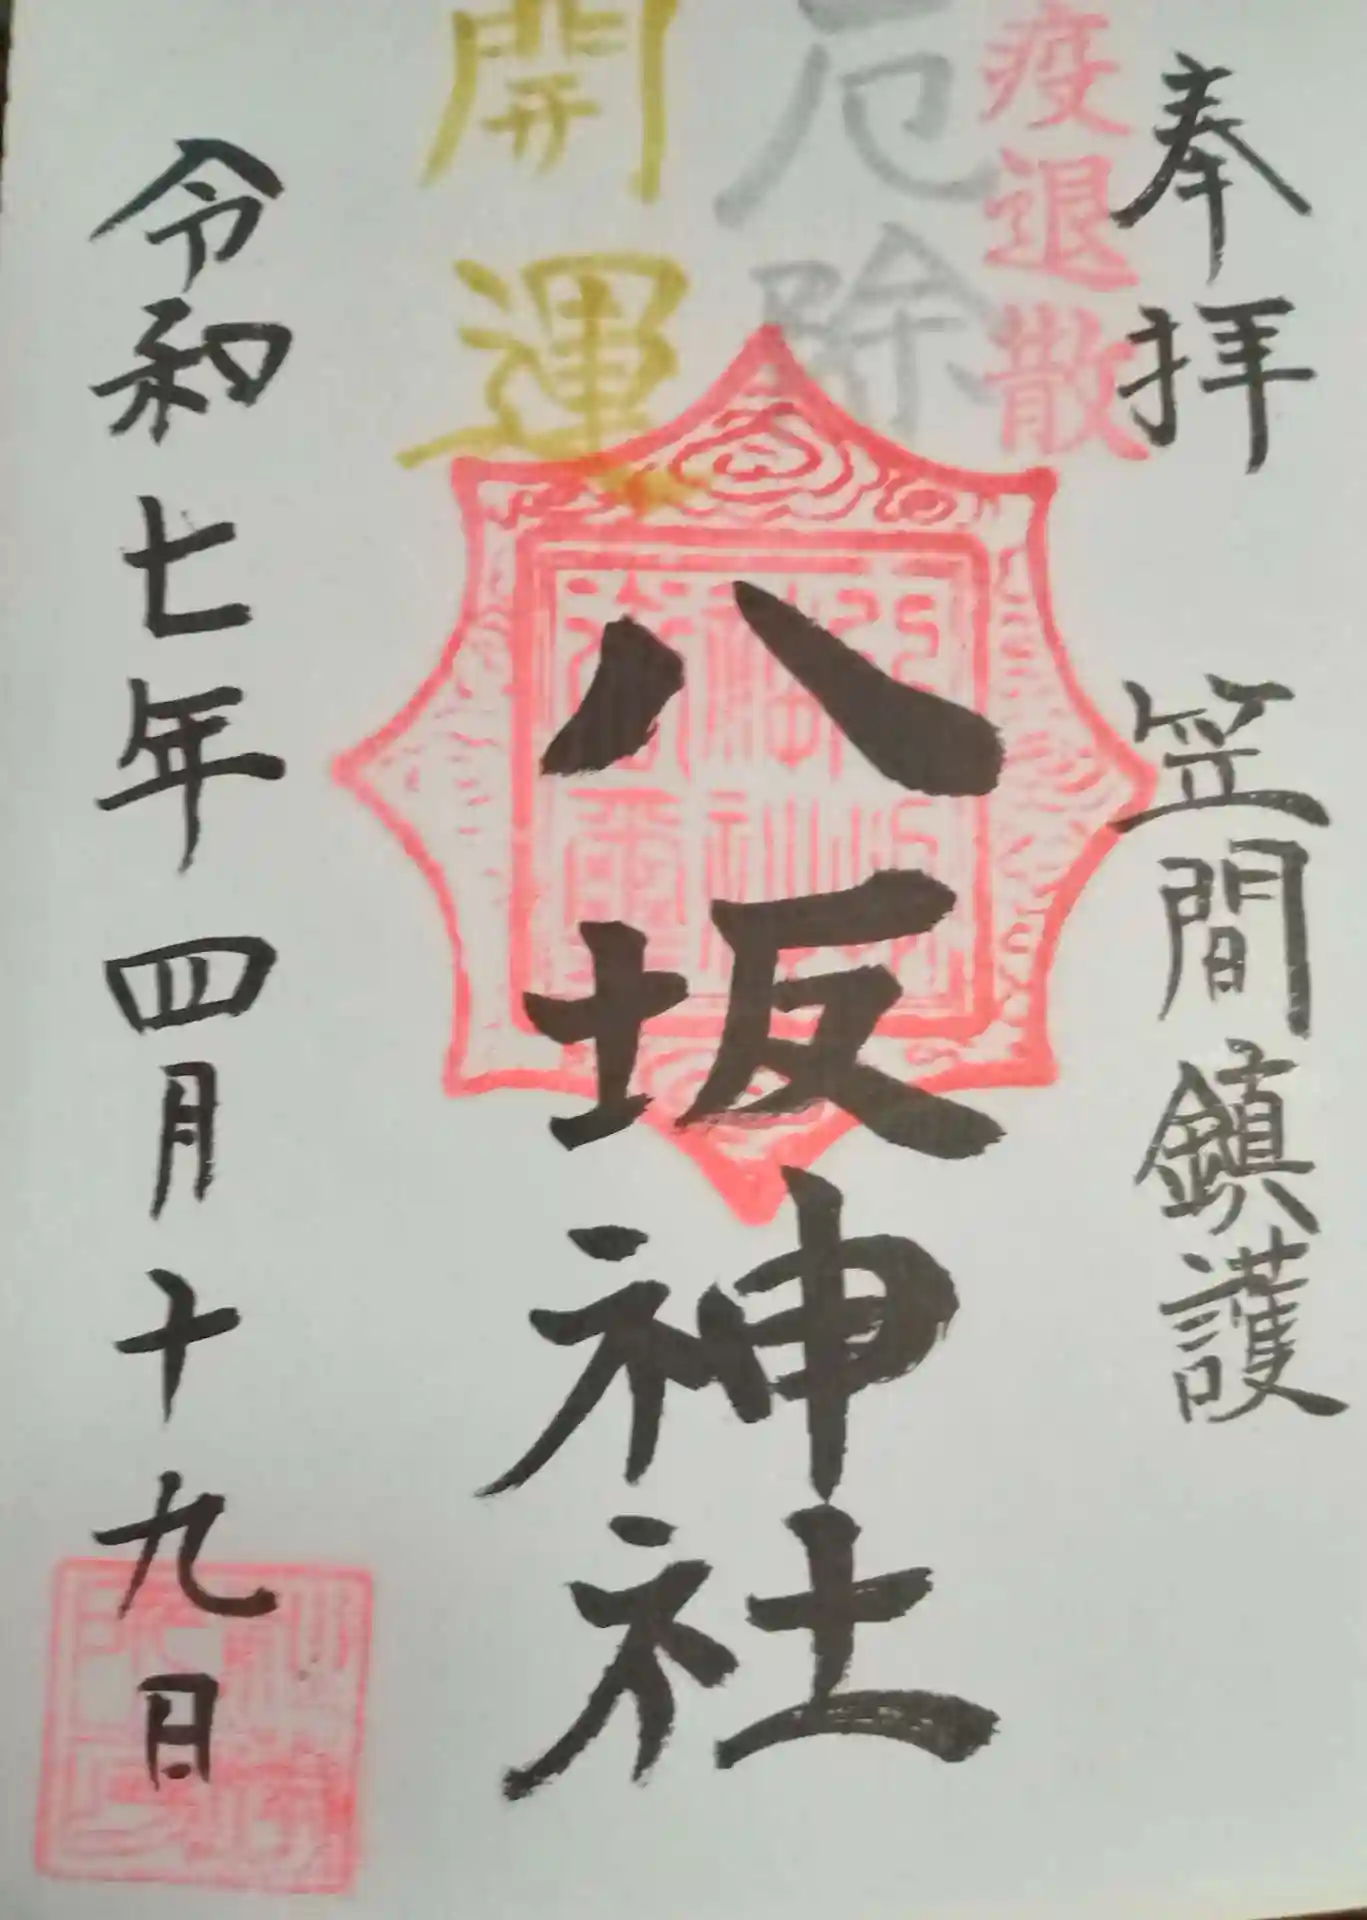 奉拝 笠間鎮護
疫退散
厄除
開運
八坂神社
令和七年四月十九日